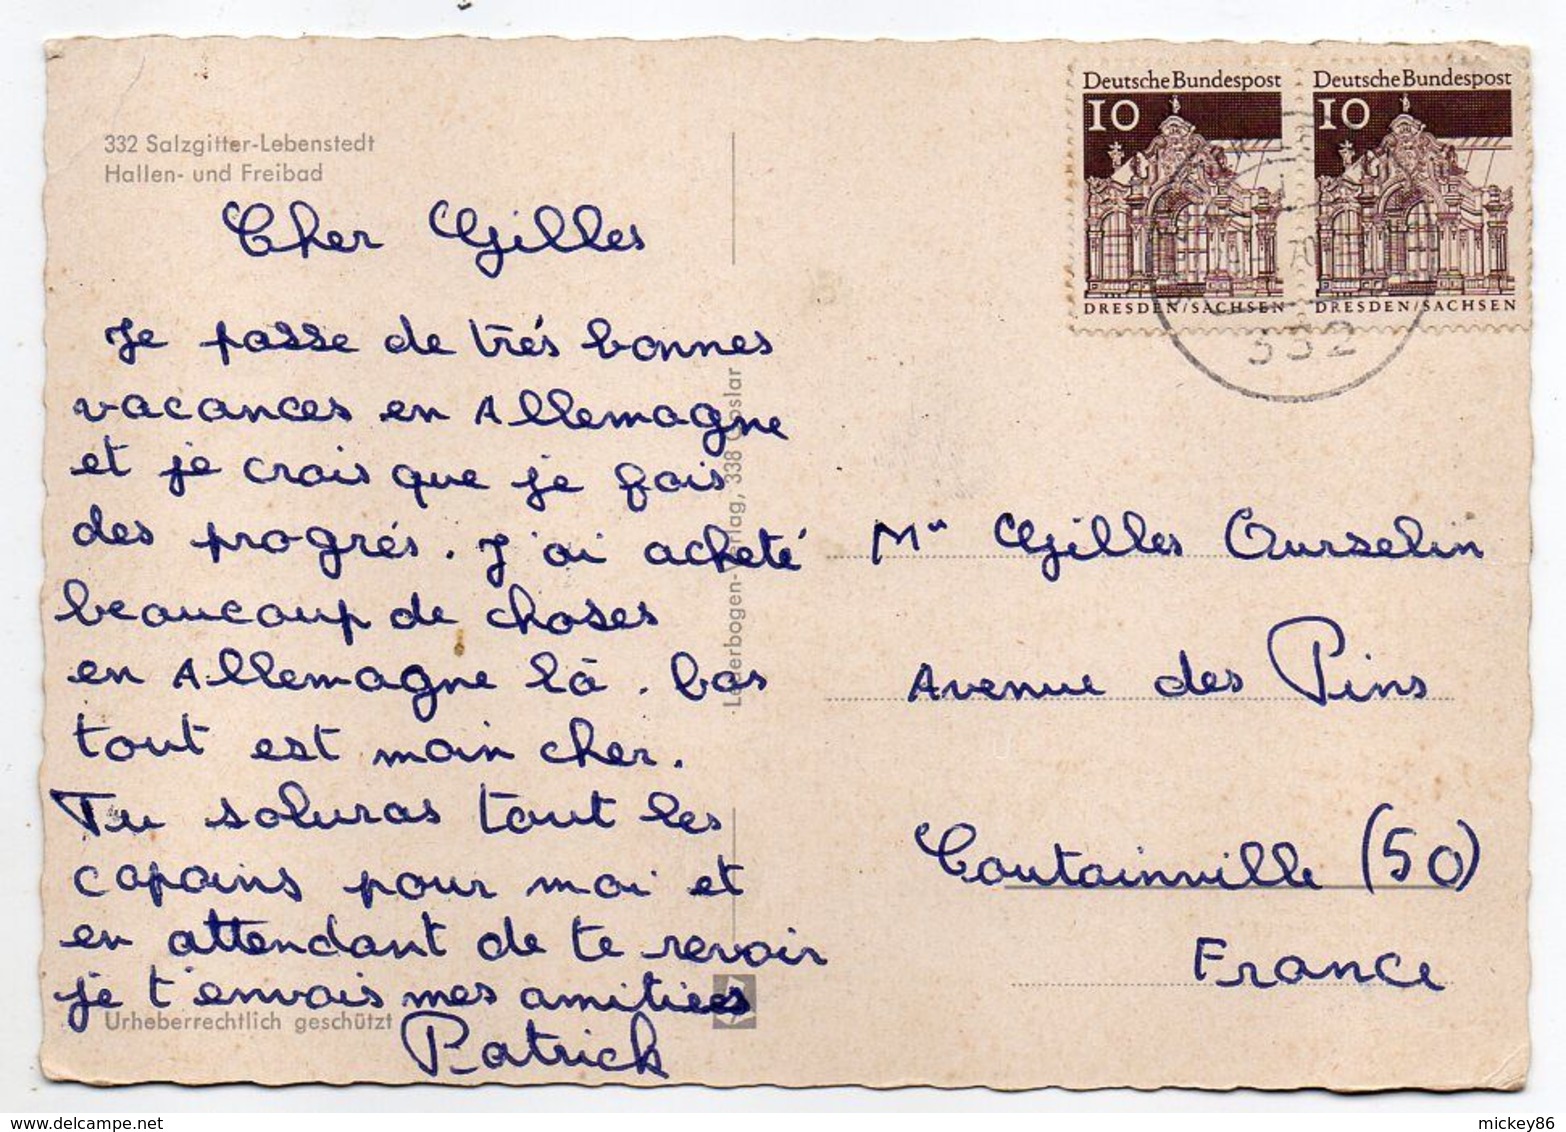 332 Salzgitter-Lebenstedt
Hallen- und Freibad
Cher Gilles
Je passe de trés bonnes
vacances en Allemagne
et je crois que je fais
des progrés. J'ai acheté
beaucoup de choses
en Allemagne là. bas
tout est moin cher.
Tu saluras tout les
copains pour moi et
en attendant de te revoir
je t'envois mes amitiees
Patrick
Urheberrechtlich geschützt
338 Goslar
Deutsche Bundespost
10
DRESDEN/SACHSEN
Deutsche Bundespost
10
DRESDEN/SACHSEN
332
Mr Gilles Ourselin
Avenue des Pins
Coutainville (50)
France
mickey86